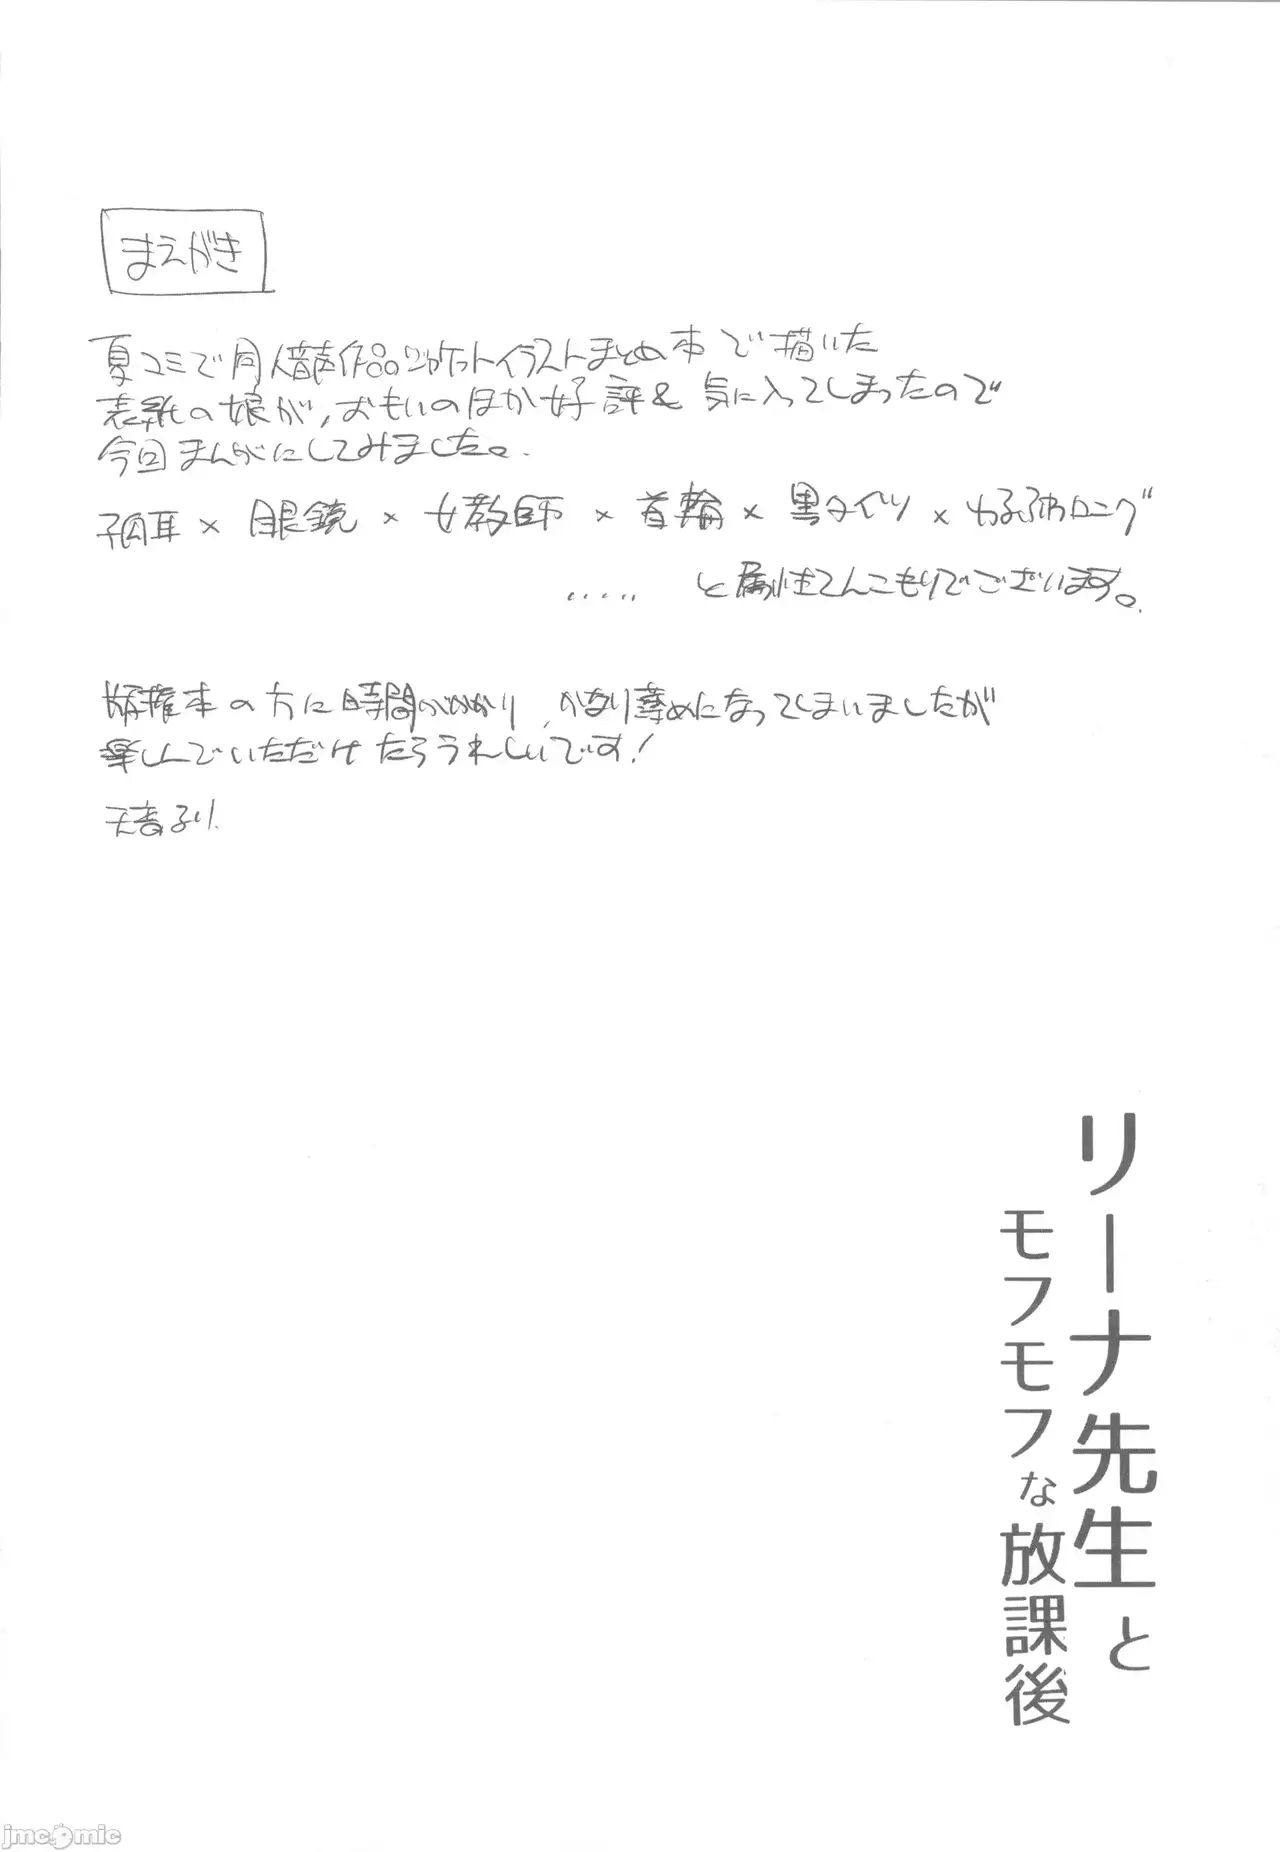 まえがき
夏コミで同人音声作品ジャケットイラストまとめ本で描いた
表紙の娘が、おもいのほか好評&気に入ってしまったので
今回まんがにしてみました。
狐耳×眼鏡×女教師×首輪×黒タイツ×ゆるふわロング
……と属性てんこもりでございます。
版権本の方に時間がかかり、かなり薄めになってしまいましたが
楽しんでいただけたらうれしいです!
天音るり
リーナ先生と
モフモフな放課後
jmcomic